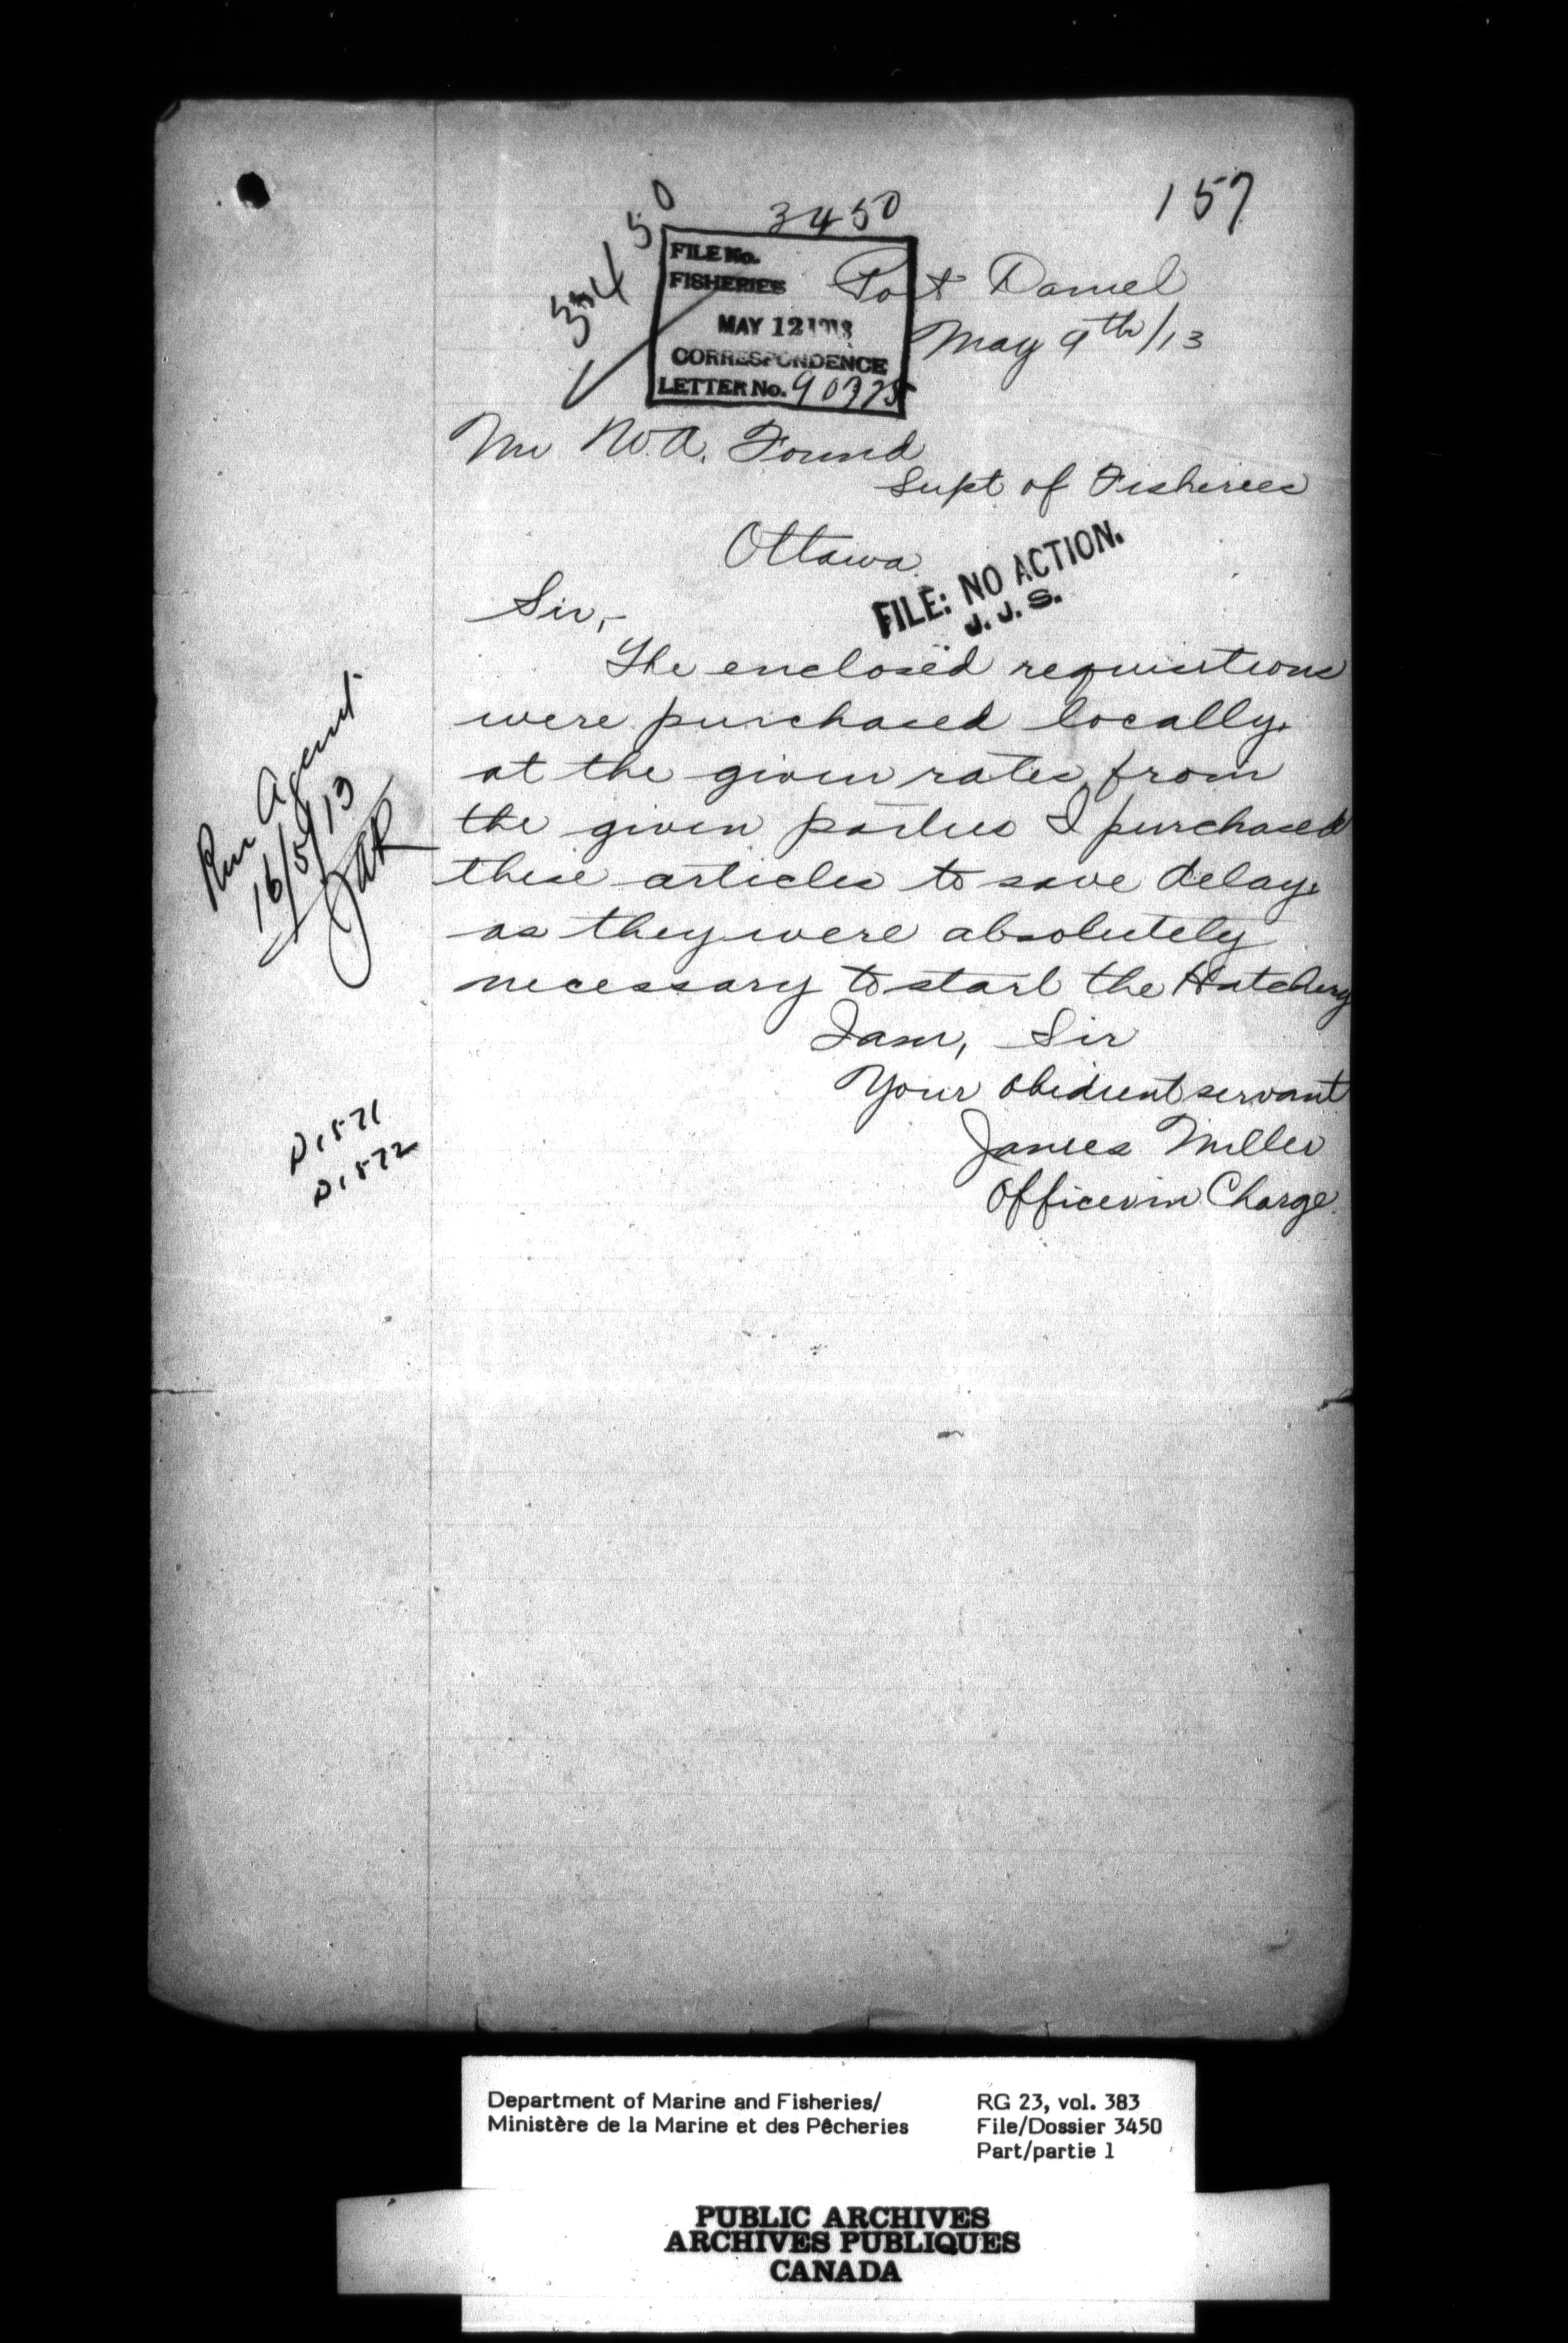 157
3450
3450
FILE No.
FISHERIES
MAY 12 1913
CORRESPONDENCE
LETTER No. 90775
Port Daniel
May 9th/13
Mr W.A. Found
Supt of Fisheries
Ottawa.
FILE: NO ACTION.
J. J. S.
Sir,-
The enclosed requisitions
were purchased locally.
at the given rates, from
the given parties I purchased
these articles to save delay.
as they were absolutely
necessary to start the Hatchery
I am, Sir
Your obedient servant
James Miller
Officer in Charge.
Agent
16/5/13
D1571
D1572
Department of Marine and Fisheries/
Ministère de la Marine et des Pêcheries
RG 23, vol. 383
File/Dossier 3450
Part/partie 1
PUBLIC ARCHIVES
ARCHIVES PUBLIQUES
CANADA